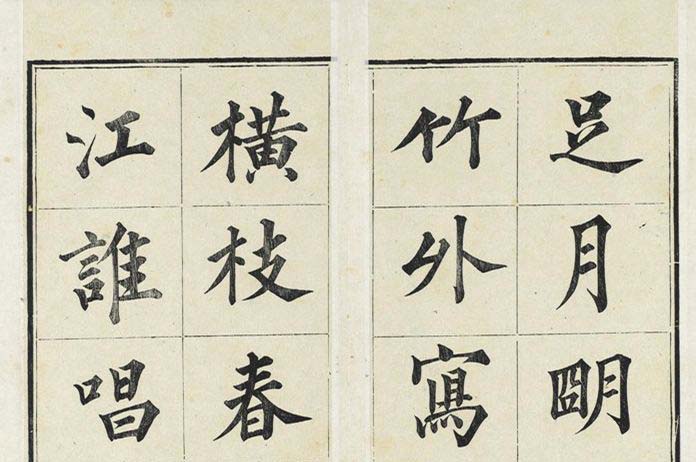 足月明
竹外寫
橫枝春
江誰唱